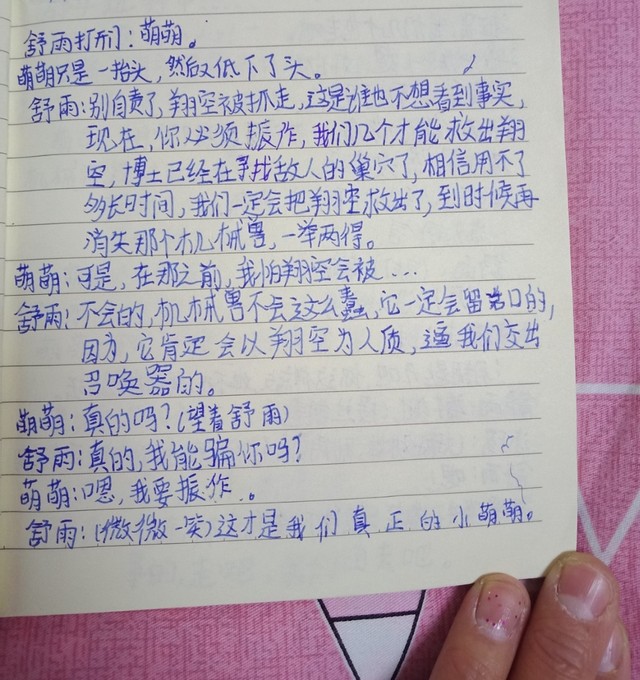 舒雨打开门：萌萌。
萌萌只是一抬头，然后又低下了头。
舒雨：别自责了，翔空被抓走，这是谁也不想看到事实，
现在，你必须振作，我们几个才能救出翔
空，博士已经在寻找敌人的巢穴了，相信用不了
多长时间，我们一定会把翔空救出了，到时候再
消失那个机械兽，一举两得。
萌萌：可是，在那之前，我怕翔空会被…
舒雨：不会的，机械兽不会这么蠢，它一定会留活口的，
因为，它肯定会以翔空为人质，逼我们交出
召唤器的。
萌萌：真的吗？（望着舒雨）
舒雨：真的，我能骗你吗？
萌萌：嗯，我要振作。
舒雨：（微微一笑）这才是我们真正的小萌萌。